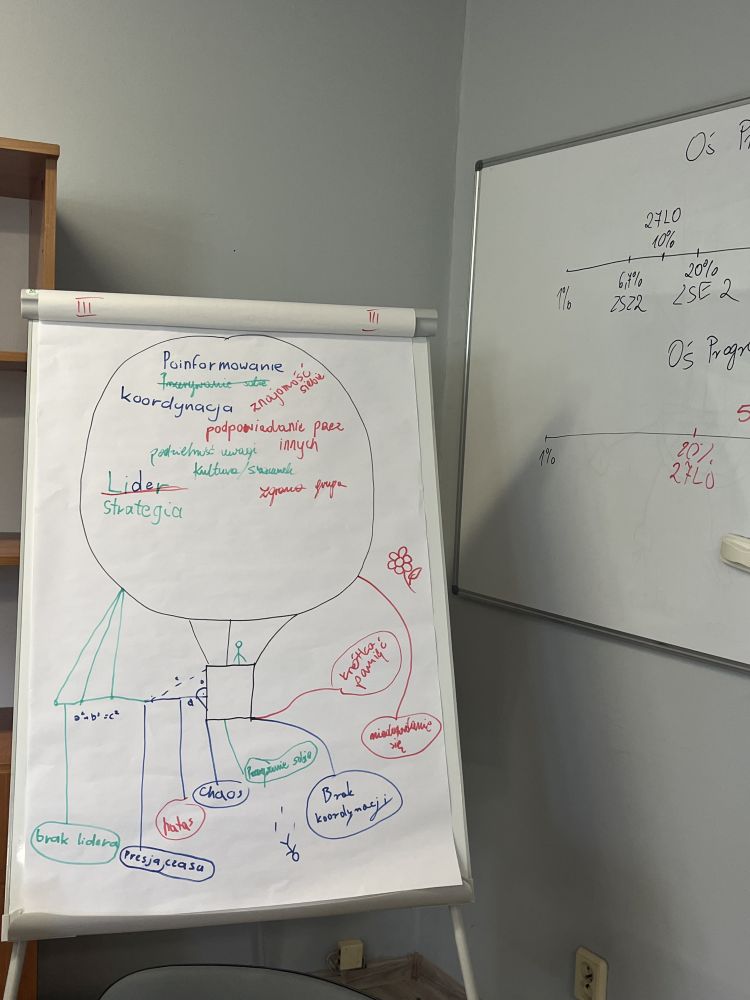 III III
Poinformowanie
koordynacja
znajomość
siebie
podpowiadanie przez
innych
podzielność uwagi
kultura/szacunek
Lider
zgrana grupa
strategia
a²+b²=c²
krótka
pamięć
się
Przerywanie sobie
chaos
hałas
Brak
koordynacji
brak lidera
Presja czasu
Oś Pr
27LO
10%
1%
6,7%
ZSZ2
20%
ZSE 2
Oś Progr
5
1%
20%
27LO